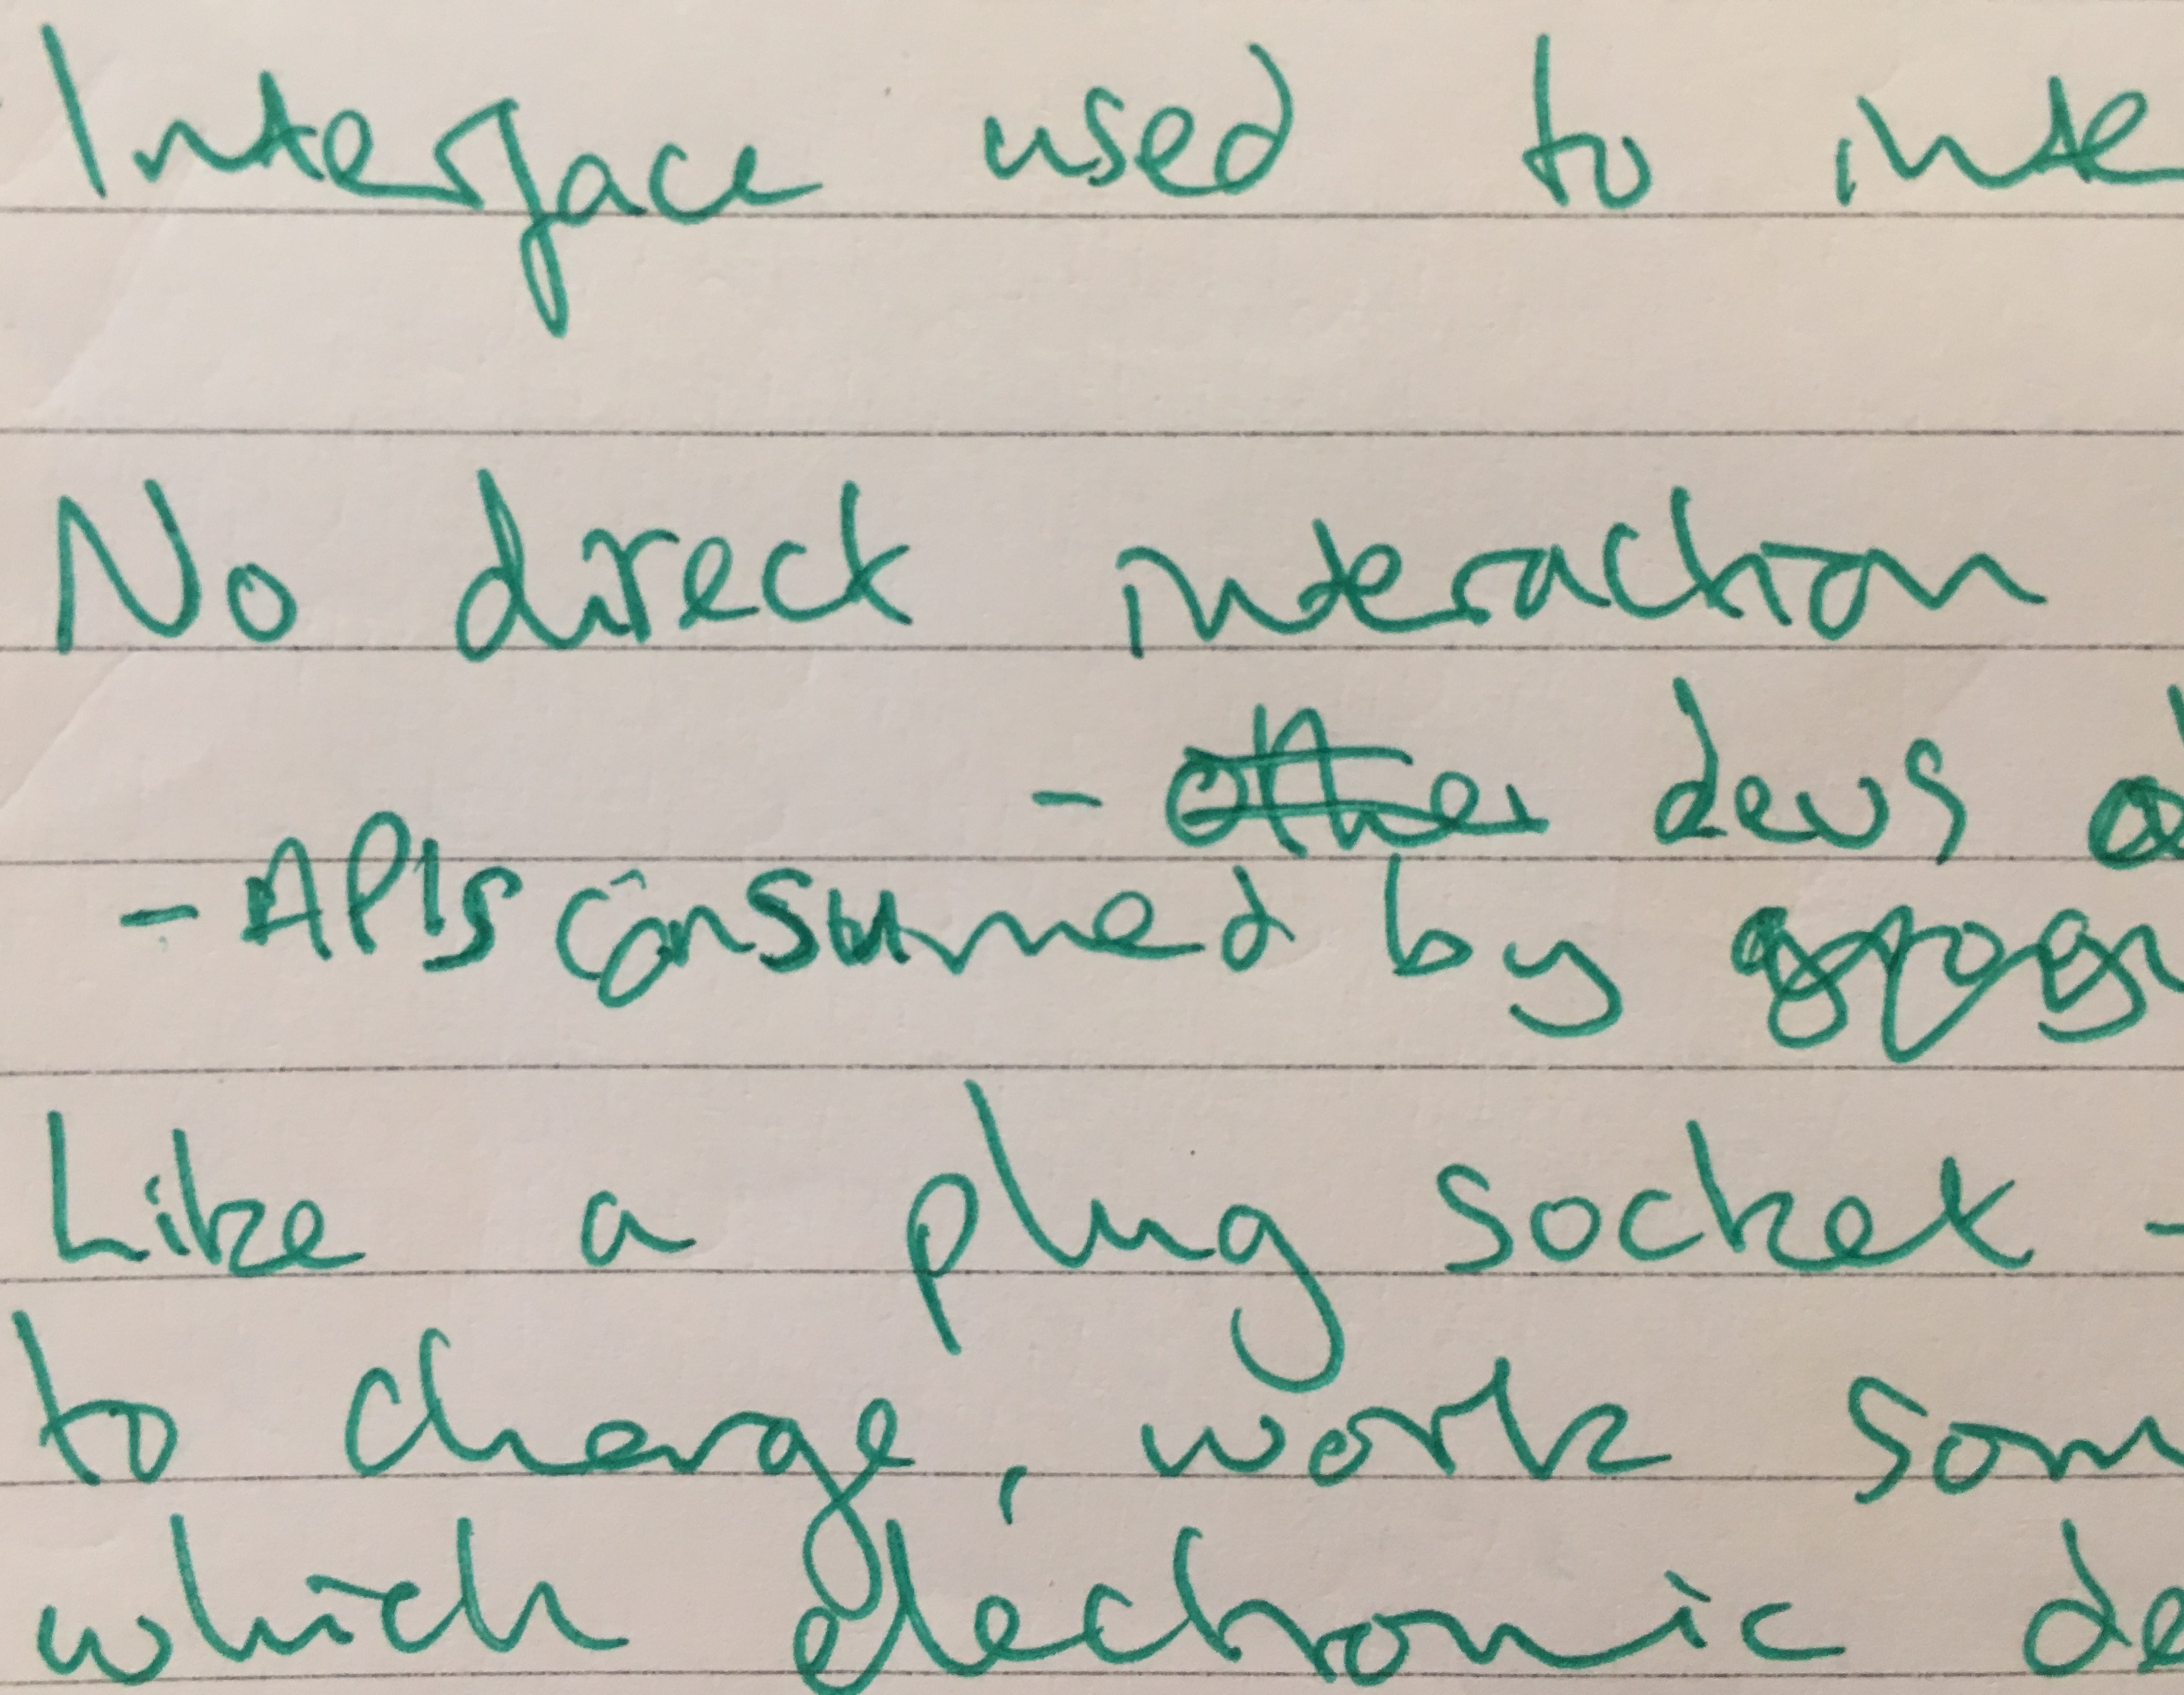 Interface used to inte
No direct interaction
- other devs
- APIs consumed by progr
Like a plug socket -
to charge, work som
which electronic de